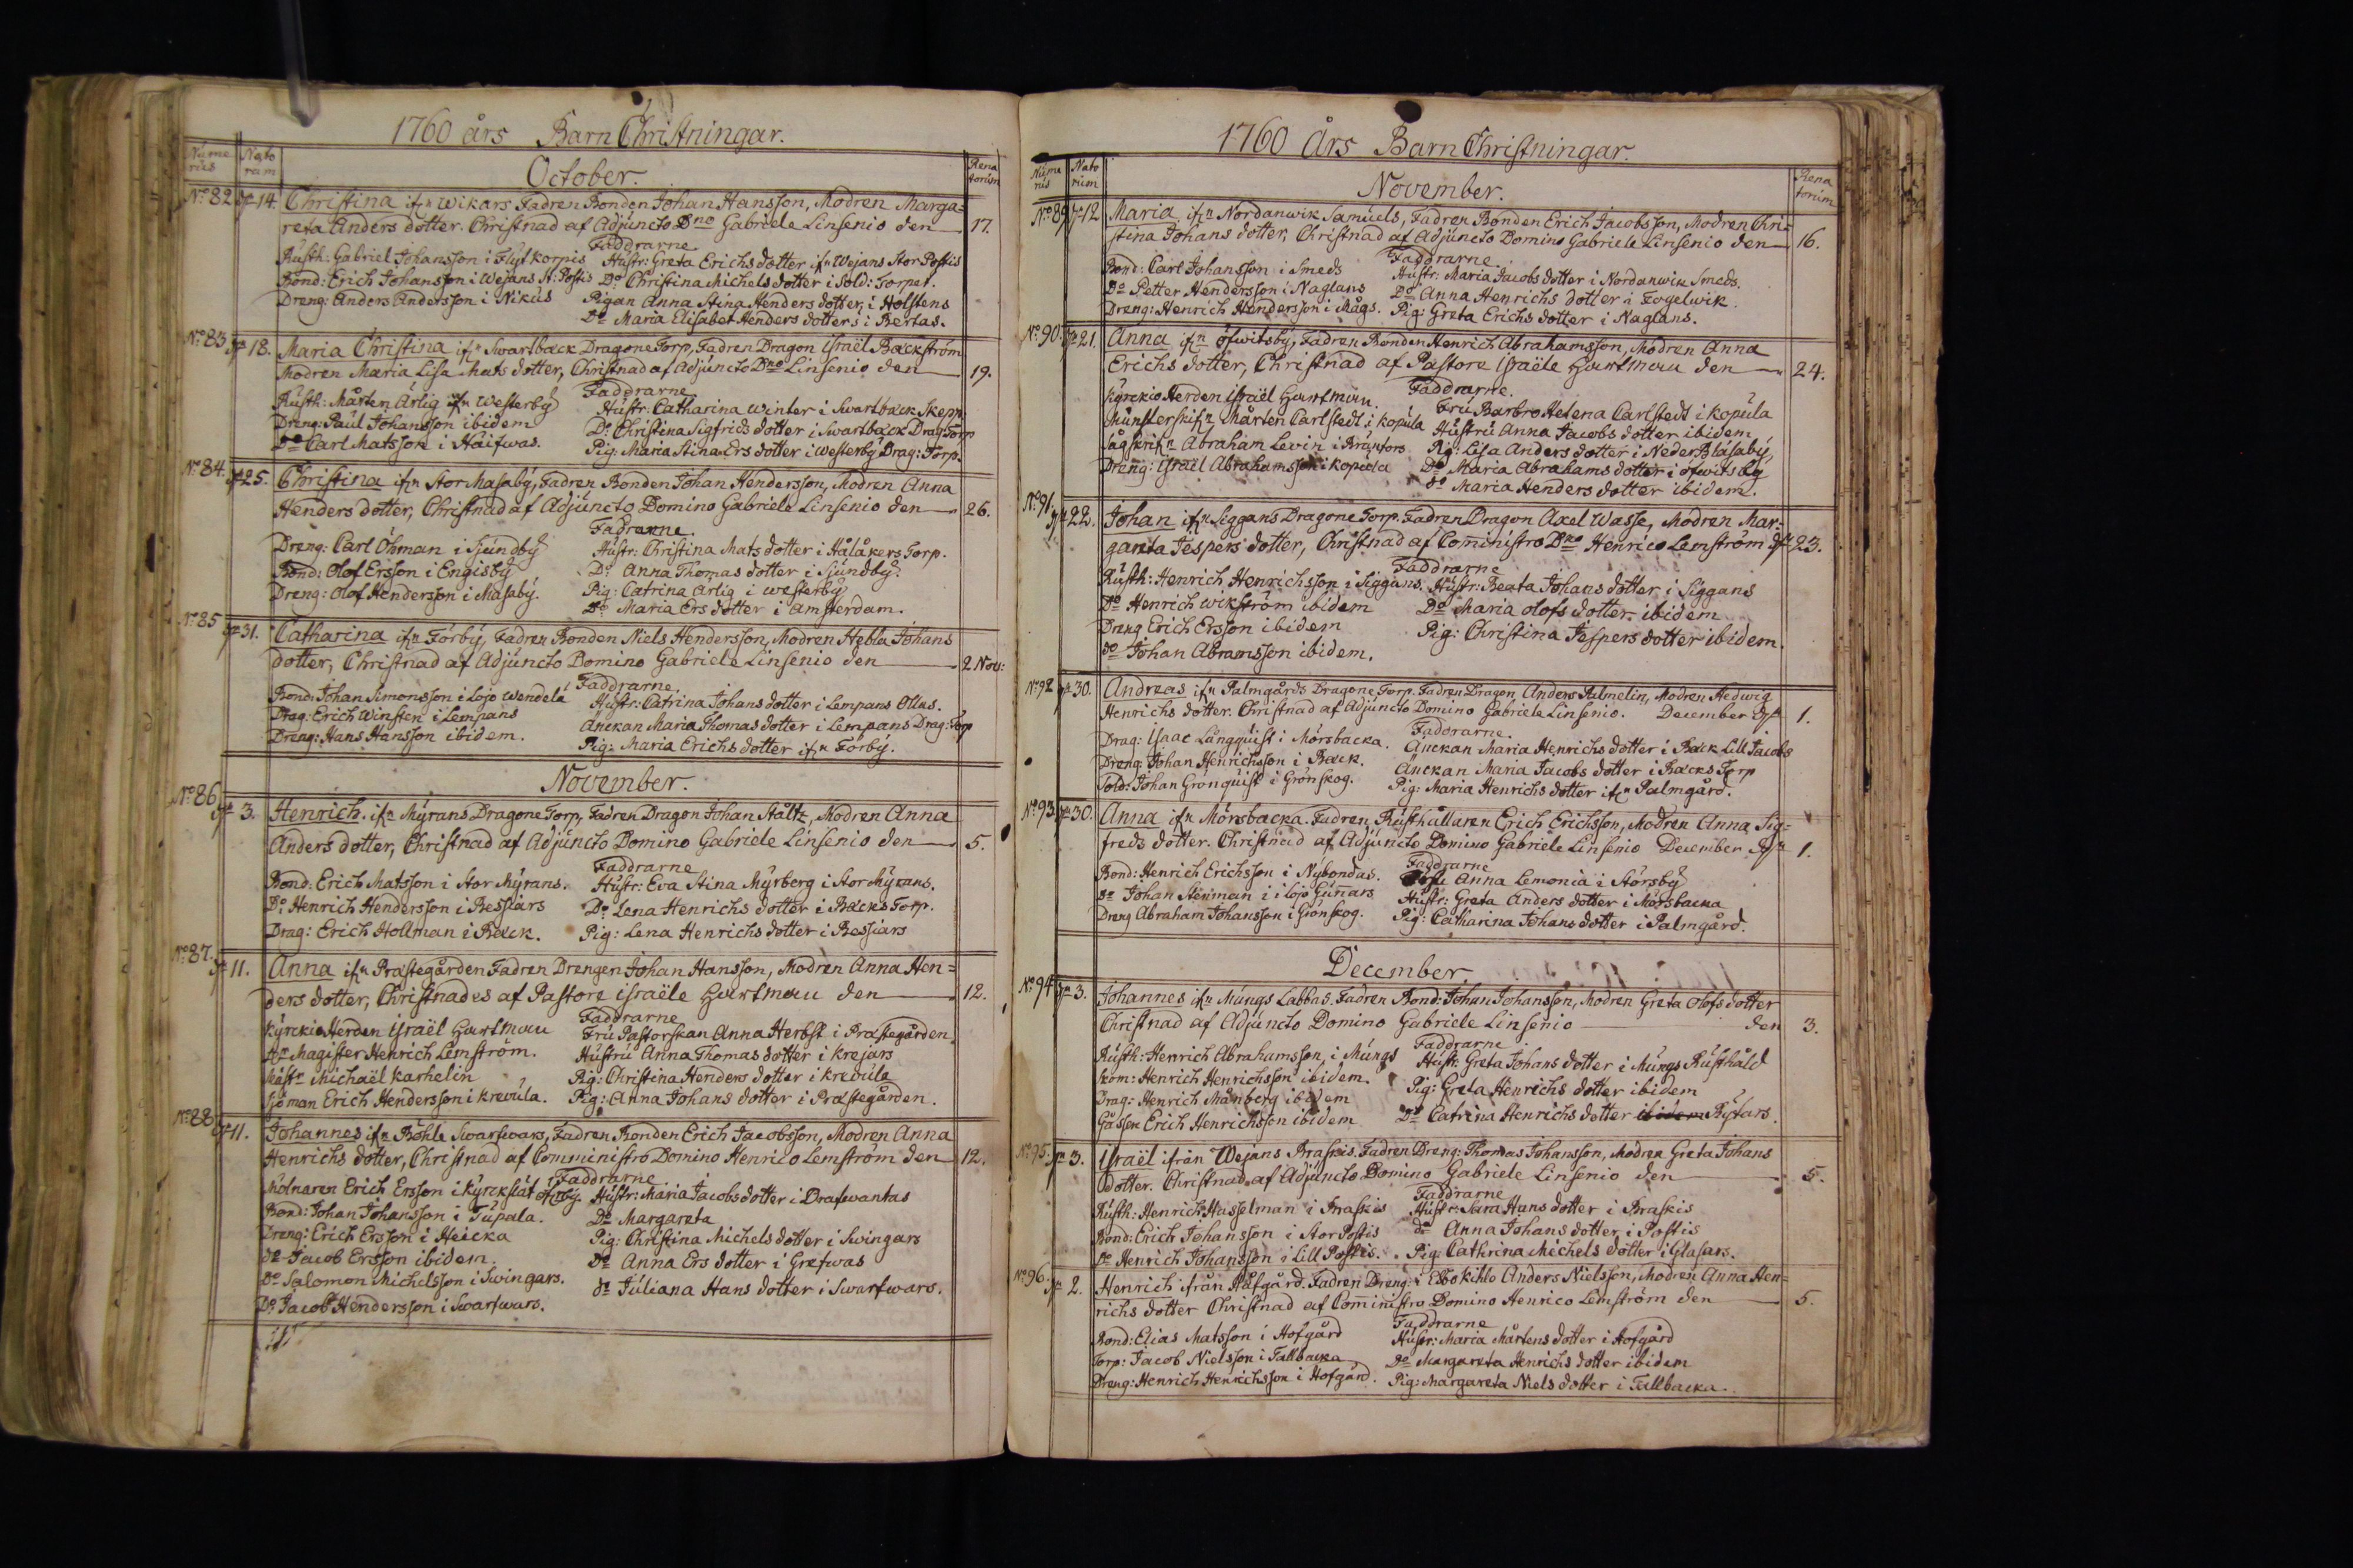 1760 års Barn Christningar.
Nume
rus
Nato
rum
Rena
torum
October.
No 82 d. 14. Christina ifn Wikars Fadren Bonden Johan Hansson, Modren Marga=
reta Anders dotter. Christnad af Adjuncto Dno Gabriele Linsenio den 17.
Faddrarne
Rusth: Gabriel Johansson i Flyt korpis Hustr: Greta Erichs dotter ifn Wejans Stor Postis
Bond: Erich Johansson i Wejans St: Postis Do Christina Michels dotter i Sold: Torpet.
Dreng: Anders Andersson i Nikus Pigan Anna Stina Henders dotter i Holstens
Do Maria Elisabet Henders dotter i Bertas.
No 83 d. 18. Maria Christina ifn Swartback Dragone Torp, Fadren Dragon Israël Backström
Modren Maria Lisa Mats dotter, Christnad af Adjuncto Dno Linsenio den 19.
Faddrarne
Rusth: Mårten Arlig ifn Westerby Hustr: Catharina Winter i Swartback Skepp:
Dreng: Paul Johansson ibidem Do Christina Sigfrids dotter i Swartback Drag: Torp
Do Carl Matsson i Haifwas. Pig: Maria Stina Ers dotter i Westerby Drag: Torp.
No 84. d. 25. Christina ifn Stor Masaby, Fadren Bonden Johan Hendersson, Modren Anna
Henders dotter, Christnad af Adjuncto Domino Gabriele Linsenio den 26.
Faddrarne
Dreng: Carl Öhman i Sjundby Hustr: Christina Mats dotter i Hålåkers Torp.
Bond: Olof Ersson i Engisby Do Anna Thomas dotter i Sjundby.
Dreng: Olof Hendersson i Masaby. Pig: Catrina Arlig i Westerby
Do Maria Ers dotter i Amsterdam.
No 85 d. 31. Catharina ifn Förby, Fadren Bonden Niels Hendersson, Modren Hebla Johans
dotter, Christnad af Adjuncto Domino Gabriele Linsenio den 2 Nov:
Faddrarne
Bond: Johan Simonsson i Lojo Wendela Hustr: Catrina Johans dotter i Lempans Ollas.
Drag: Erich Winsten i Lempans Änckan Maria Thomas dotter i Lempans Drag: Torp
Dreng: Hans Hansson ibidem. Pig: Maria Erichs dotter ifn Förby.
November.
No 86 d. 3. Henrich. ifn Myrans Dragone Torp, Fadren Dragon Johan Ståltz, Modren Anna
Anders dotter, Christnad af Adjuncto Domino Gabriele Linsenio den 5.
Faddrarne
Bond: Erich Matsson i Stor Myrans. Hustr: Eva Stina Myrberg i Stor Myrans.
Do Henrich Hendersson i Bessiars Do Lena Henrichs dotter i Backs Torp.
Drag: Erich Hollman i Back. Pig: Lena Henrichs dotter i Bessiars
No 87. d. 11. Anna ifn Prastegården Fadren Drengen Johan Hansson, Modren Anna Hen=
ders dotter, Christnades af Pastore Israële Hartman den 12.
Faddrarne
Kyrckio Herden Israël Hartman Fru Pastorskan Anna Herbst i Prastegården.
Hr Magister Henrich Lemström. Hustru Anna Thomas dotter i Krejars
Mästr Michaël Karhelin Pig: Christina Henders dotter i Krevula
Sjöman Erich Hendersson i Krevula. Pig: Anna Johans dotter i Prastegården.
No 88 d. 11. Johannes ifn Böhle Swarfwars, Fadren Bonden Erich Jacobsson, Modren Anna
Henrichs dotter, Christnad af Comministro Domino Henrico Lemström den 12.
Faddrarne
Molnaren Erich Ersson i Kyrckslät Hustr: Maria Jacobs dotter i Drafwantas
Bond: Johan Johansson i Tupala. Do Margareta
Dreng: Erich Ersson i Heicka Pig: Christina Michels dotter i Swingars
do Jacob Ersson ibidem. Do Anna Ers dotter i Grefwas
Do Salomon Michelsson i Swingars. do Juliana Hans dotter i Swarfwars.
Do Jacob Hendersson i Swarfwars.
1760 Års Barn Christningar.
Nume
rus
Nato
rum
Rena
torum
November.
No 89 d. 12 Maria ifn Nordanwik Samuels, Fadren Bonden Erich Jacobsson, Modren Chri=
stina Johans dotter, Christnad af Adjuncto Domino Gabriele Linsenio den 16.
Faddrarne.
Bond: Carl Johansson i Smeds Hustr: Maria Jacobs dotter i Nordanwik Smeds.
Do Petter Hendersson i Naglans Do Anna Henrichs dotter i Fogelwik.
Dreng: Henrich Hendersson i Mågs. Pig: Greta Erichs dotter i Naglans.
No 90. d. 21. Anna ifn Öfwitsby, Fadren Bonden Henrich Abrahamsson, Modren Anna
Erichs dotter, Christnad af Pastore Israële Hartman den 24.
Faddrarne.
Kyrckio Herden Israël Hartman. Fru Barbro Helena Carlstedt i Kopula
Mönsterskifn Mårten Carlstedt i Kopula Hustru Anna Jacobs dotter ibidem
Sågskrifn Abraham Levin i Krämfors Pig: Lisa Anders dotter i Neder Blåsaby,
Dreng: Israël Abrahamsson i Kopula Do Maria Abrahams dotter i Öfwitsby
do Maria Henders dotter ibidem.
No 91. d. 22. Johan ifn Siggans Dragone Torp. Fadren Dragon Axel Wasse, Modren Mar=
gareta Jespers dotter, Christnad af Com̄inistro Dno Henrico Lemström d. 23.
Faddrarne
Rusth: Henrich Henrichsson i Siggans. Hustr: Beata Johans dotter i Siggans
Do Henrich Wikström ibidem Do Maria Olofs dotter ibidem
Dreng Erich Ersson ibidem Pig: Christina Jespers dotter ibidem.
do Johan Abramsson ibidem.
No 92 d. 30. Andreas ifn Palmgårds Dragone Torp. Fadren Dragon Anders Palmelin, Modren Hedwig
Henrichs dotter. Christnad af Adjuncto Domino Gabriele Linsenio. December d. 1.
Faddrarne.
Drag: Isaac Långquist i Mörsbacka. Änckan Maria Henrichs dotter i Back Lill Jacobs
Dreng: Johan Henrichsson i Back. Änckan Maria Jacobs dotter i Backs Torp
Sold: Johan Grönquist i Grönskog. Pig: Maria Henrichs dotter ifn Palmgård.
No 93 d. 30. Anna ifn Mörsbacka. Fadren, Rusthållaren Erich Erichsson, Modren Anna Sig=
freds dotter. Christnad af Adjuncto Domino Gabriele Linsenio December d. 1.
Faddrarne
Bond: Henrich Erichsson i Nybondas. Anna Lemonia i Störsby
do Johan Stenman i i Lojo Gun̄ars Hustr: Greta Anders dotter i Mörsbacka
Dreng Abraham Johansson i Grönskog. Pig: Catharina Johans dotter i Palmgård.
December
No 94 d. 3. Johannes ifn Mungs Labbas. Fadren Bond: Johan Johansson, Modren Greta Olofs dotter
Christnad af Adjuncto Domino Gabriele Linsenio den 3.
Faddrarne
Rusth: Henrich Abrahamsson, i Mungs Hustr: Greta Johans dotter i Mungs Rusthåld
Hom: Henrich Henrichsson ibidem. Pig: Greta Henrichs dotter ibidem
Drag: Henrich Månberg ibidem
Gåssen Erich Henrichsson ibidem Do Catrina Henrichs dotter ibidem Bistars.
No 95. d. 3. Israël ifrån Wejans Praskis. Fadren Dreng: Thomas Johansson, Modren Greta Johans
dotter. Christnad af Adjuncto Domino Gabriele Linsenio den 5.
Faddrarne
Rusth: Henrich Hasselman i Praskis Hustr: Sara Hans dotter i Praskis
Bond: Erich Johansson i Stor Postis do Anna Johans dotter i Postis
Do Henrich Johansson i Lill Postis. Pig: Cathrina Michels dotter i Glasars.
No 96. d. 2. Henrich ifrån Håfgård. Fadren Dreng: i Ebbokihlo Anders Nielsson, Modren Anna Hen=
richs dotter Christnad af Com̄inistro Domino Henrico Lemström den 5.
Faddrarne
Bond: Elias Matsson i Hofgård Hustr: Maria Mårtens dotter i Hofgård
Torp: Jacob Nielsson i Tallbacka Do Margareta Henrichs dotter ibidem
Dreng: Henrich Henrichsson i Hofgård. Pig: Margareta Niels dotter i Tallbacka.